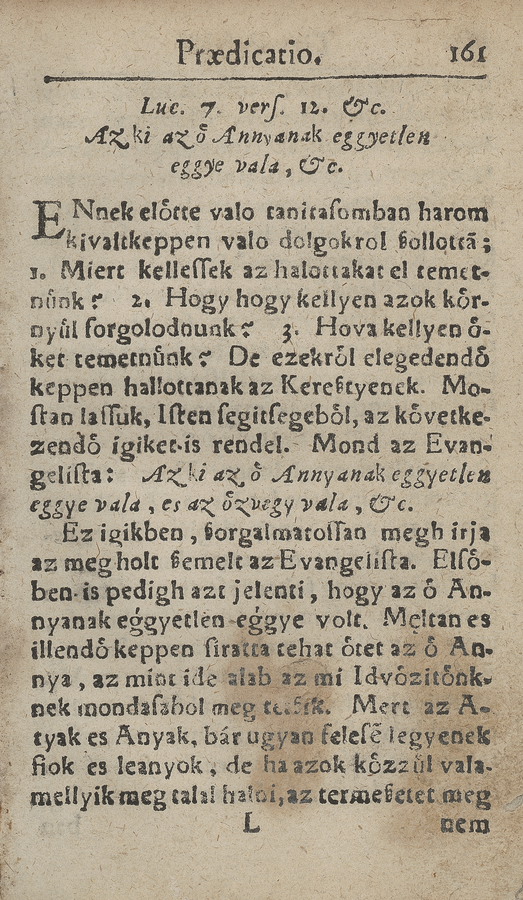 Prædicatio. 161
Luc. 7. verſ. 12. &c.
Az ki az ő Annyanak eggyetlen
eggye vala, &c.
ENnek előtte valo tanitaſomban harom
kivaltkeppen valo dolgokrol ßollottã;
1. Miert kelleſſek az halottakat el temet-
nűnk? 2. Hogy hogy kellyen azok kőr-
nyűl forgolodnunk? 3. Hova kellyen ő-
ket temetnűnk? De ezekről elegedendő
keppen hallottanak az Kereßtyenek. Mo-
ſtan laſſuk, Iſten ſegitſegeből, az kővetke-
zendő igiket-is rendel. Mond az Evan-
geliſta: Az ki az ő Annyanak eggyetlen
eggye vala, es az őzvegy vala, &c.
Ez igikben, ßorgalmatoſſan megh irja
az meg holt ßemelt az Evangeliſta. Elſő-
ben-is pedigh azt jelenti, hogy az ő An-
nyanak eggyetlen eggye volt. Meltan es
illendő keppen ſiratta tehat őtet az ő An-
nya, az mint ide alab az mi Idvőzitőnk-
nek mondaſabol meg tetßik. Mert az A-
tyak es Anyak, bár ugyan feleſẽ legyenek
fiok es leanyok, de ha azok kőzzűl vala-
mellyik meg talal halni, az termeßetet meg
L nem